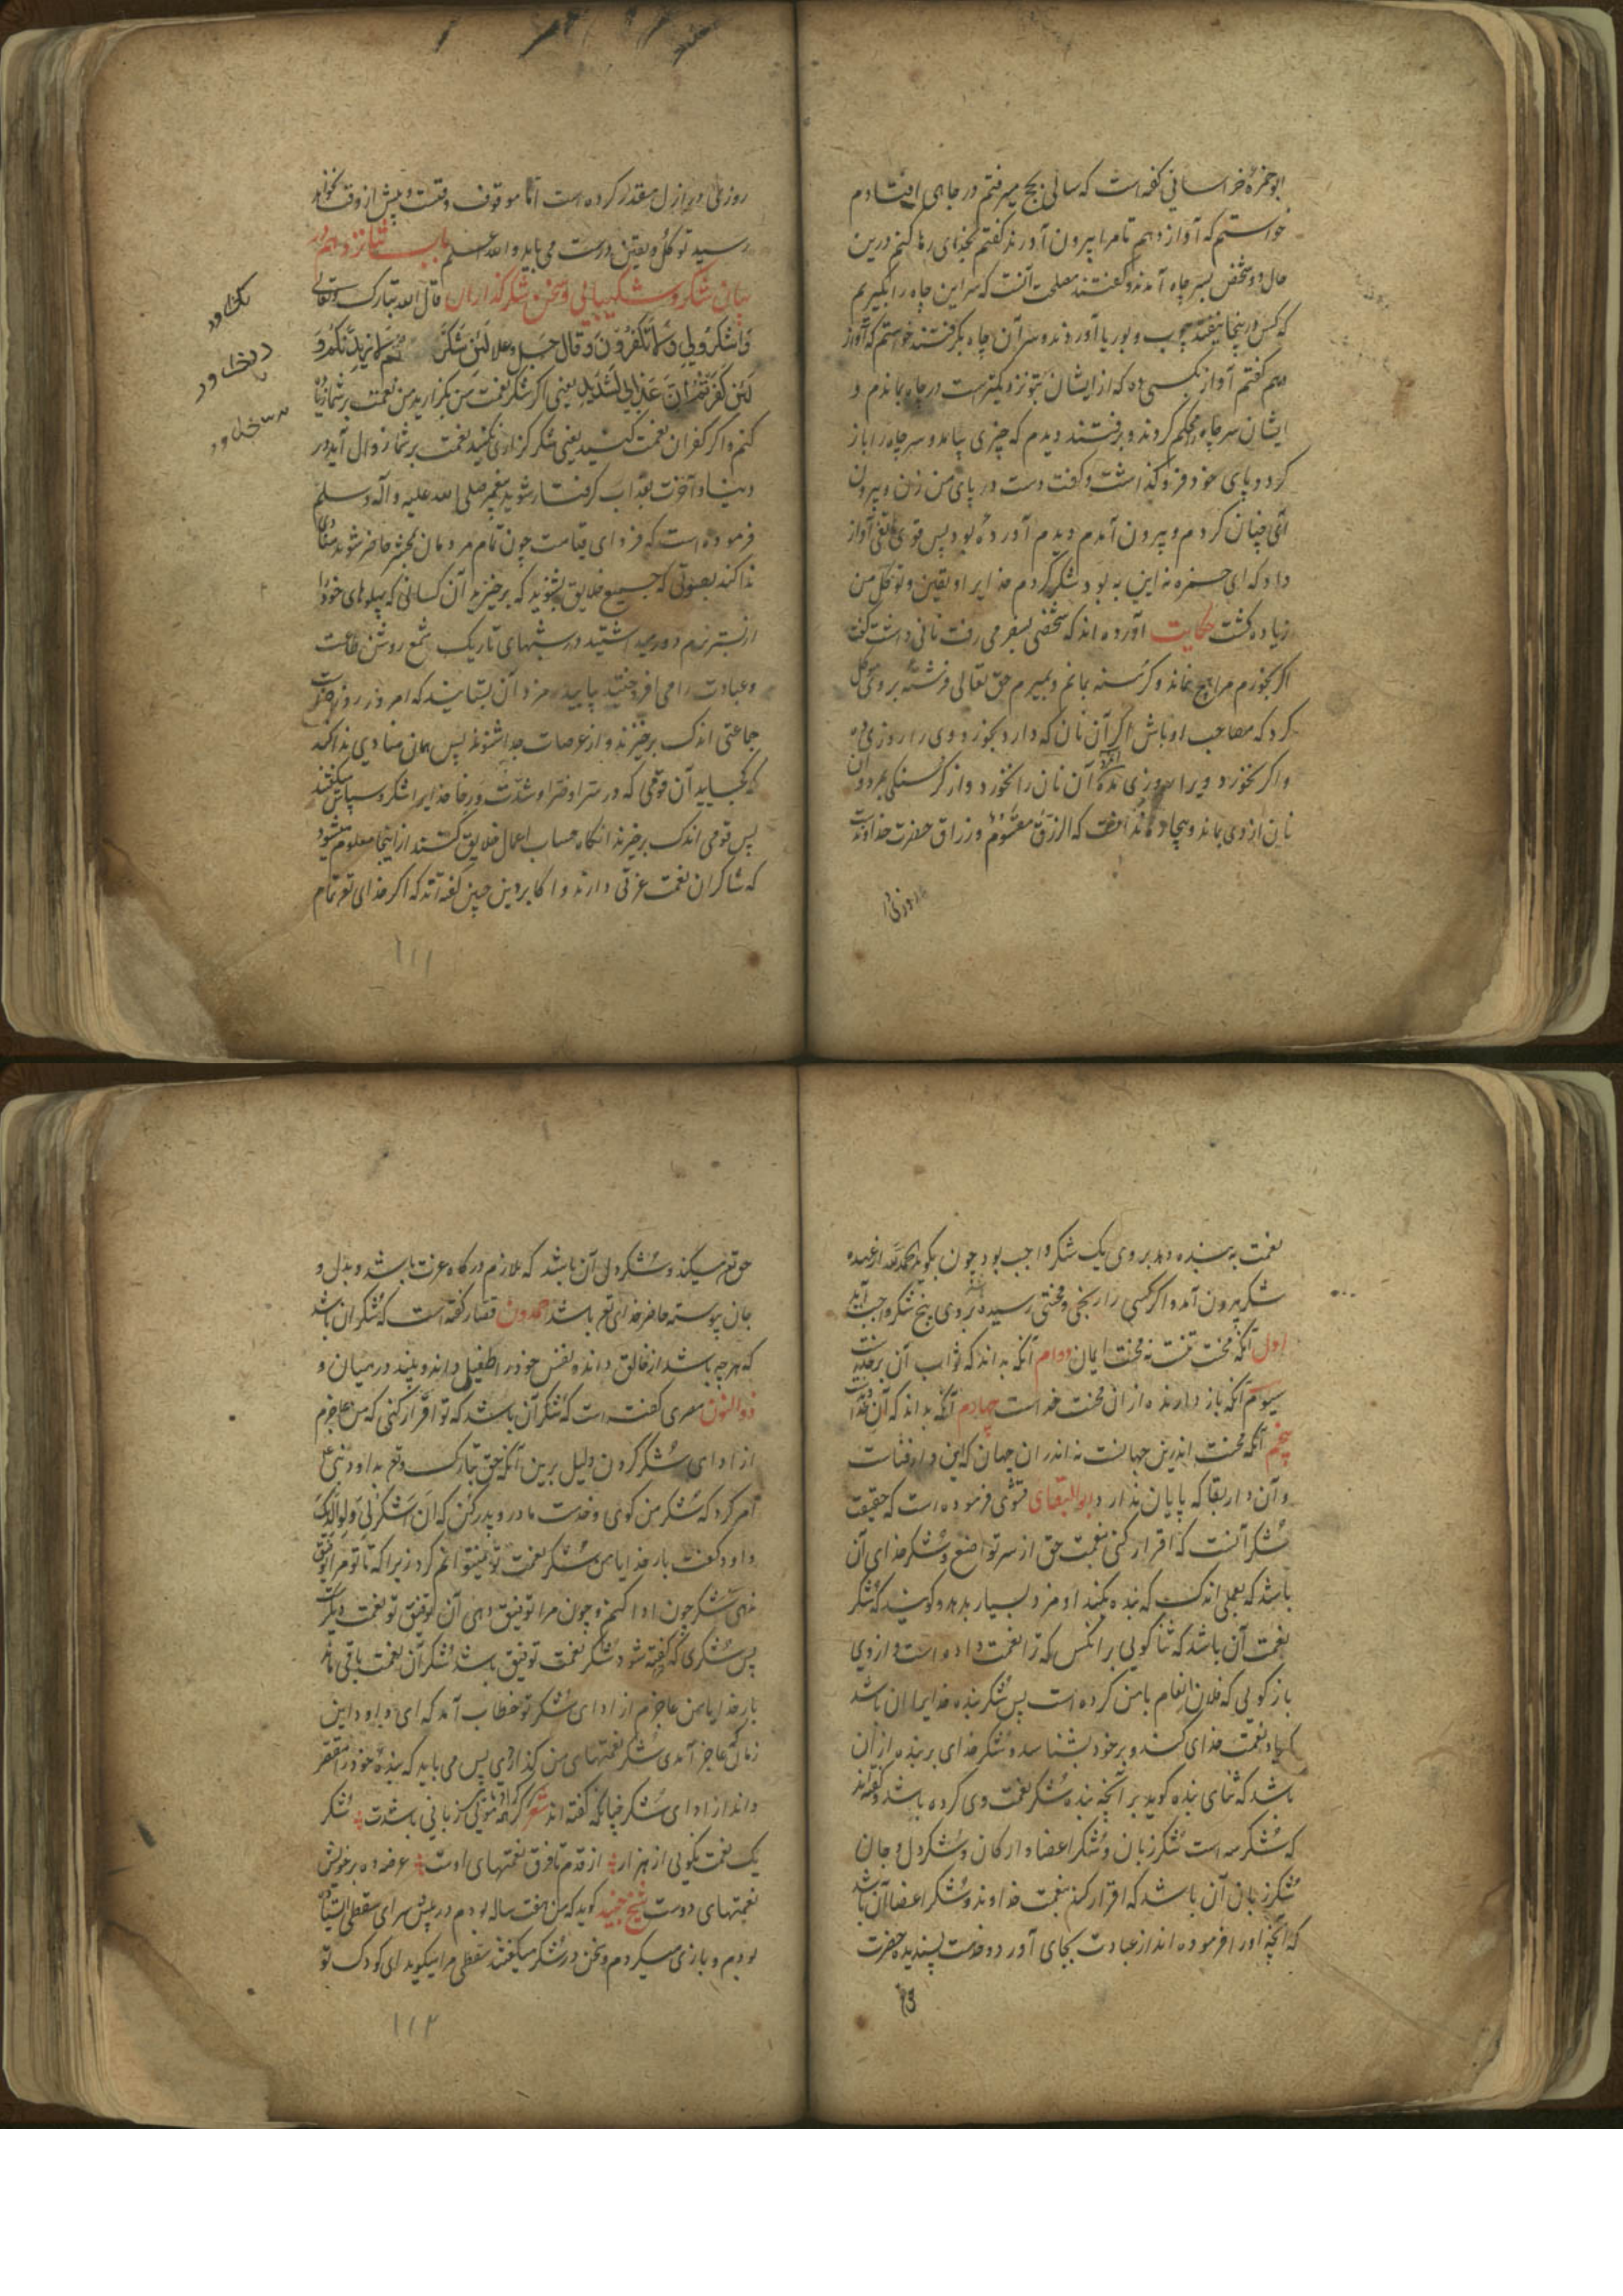 ابو حمزهٔ خراسانی کفته است که سالی بحج میرفتم در چاهی افتادم
خواستم که آواز دهم تا مرا بیرون آورند کفتم بخدای رها کنم درین
حال دو شخص بسر چاه آمدند و کفتند مصلحت آنست که سر این چاه را بگیریم
که کس درینجا نیفتد چوب و بوریا آوردند و سر آن چاه بگرفتند خواستم که آواز
دهم کفتم آواز بکسی ده که از ایشان بتو نزدیکترست در چاه بماندم و
ایشان سر چاه محکم کردند و برفتند دیدم که چیزی بیامد و سر چاه را باز
کرد و پای خود فرو کذاشت و کفت دست در پای من زن و بیرون
آی چنان کردم و بیرون آمدم دیدم آورده بود پس قوی هاتفی آواز
داد که ای حمزه نه این به بود شکر کردم خدایرا و یقین و توکل من
زیاده کشت حکایت آورده اند که شخصی بسفر می رفت نانی داشت کفت
اکر بخورم مرا هیچ نماند و کرسنه بمانم و بمیرم حق تعالی فرشته بر وی موکل
کرد که مصاحب او باش اکر آن نان که دارد بخورد وی را روزی ده
و اکر نخورد ویرا روزی مده آن نان را نخورد و از کرسنکی بمرد و آن
نان از وی بماند که الرزق مقسوم و رزاق حضرت خداوندست
روزی را
روزی را در ازل مقدر کرده است اما موقوف وقتست و پیش از وقت نخواهد
رسید توکل و یقین درست می باید والله اعلم باب شانزدهم در
بیان شکر و شکیبایی و سخن شکر کذاران قال الله تبارک و تعالی
وَاشْکُرُوا لِی وَلَا تَکْفُرُون وَ قال جل و علا لَئِن شَکَرْتُم لَاَزِیدَنَّکُمْ وَ
لَئِن کَفَرْتُمْ اِنَّ عَذَابِی لَشَدِید یعنی اکر شکر نعمت من بکزارید من نعمت بر شما زیاد
کنم و اکر کفران نعمت کنید یعنی شکر کزاری نکنید نعمت بر شما زوال آید و در
دنیا و آخرت بعذاب کرفتار شوید پیغمبر صلی الله علیه و آله و سلم
فرموده است که فردای قیامت چون تمام مردمان بحشر حاضر شوند منادی
ندا کند بصوتی که جمیع خلایق بشنوند که برخیزید آن کسانی که پهلوهای خود را
از بستر نرم دور میداشتید و در شبهای تاریک شمع روشن طاعت
و عبادت را می افروختید بیایید و مزد آن بستانید که امروز روز
جماعتی اندک برخیزند و از عرصات جدا شوند پس همان منادی ندا کند
که کجایید آن قومی که در سرّا و ضرّا و شدّت و رخا خدایرا شکر و سپاس میکفتند
پس قومی اندک برخیزند آنکاه حساب اعمال خلایق کنند از اینجا معلوم میشود
که شاکران نعمت عزتی دارند و اکابر دین چنین کفته اند که اکر خدای تع تمام
۱۱۱
نعمت به بنده دهد بر وی یک شکر واجب بود چون بکوید الحمدلله از عهده
شکر بیرون آمد و اکر کسی را رنجی و محنتی رسیده بر وی پنج شکر واجب آید
اول آنکه محنت تنست نه محنت ایمان دوم آنکه بداند که ثواب آن بر خداست
سیوم آنکه باز دارنده از آن محنت خداست چهارم آنکه بداند که آن
پنجم آنکه محنت اندرین جهانست نه اندر آن جهان که این دار فناست
و آن دار بقا که پایان ندارد ابوالبقای تنوی فرموده است که حقیقت
شکر آنست که اقرار کنی بنعمت حق از سر تواضع و شکر خدای آن
باشد که بعملی اندک که بنده بکند او مزد بسیار بدهد و کویند که شکر
نعمت آن باشد که ثنا کویی بر آنکس که ترا نعمت داده است و از وی
باز کویی که فلان انعام با من کرده است پس شکر بنده خدایرا آن باشد
که یاد نعمت خدای کند و بر خود بشناسد و شکر خدای بر بنده از آن
باشد که ثنای بنده کوید بر آنچه بنده شکر نعمت وی کرده باشد و کفته اند
که شکر سه است شکر زبان و شکر اعضا و ارکان و شکر دل و جان
شکر زبان آن باشد که اقرار کند بنعمت خداوند و شکر اعضا آن باشد
که آنچه او را فرموده اند از عبادت بجای آورد و خدمت پسندیده حضرت
حق تع میکند و شکر دل آن باشد که ملازم درکاه عزت باشد و بدل و
جان پیوسته حاضر خدای تع باشد حمدون قصار کفته است که شکر آن باشد
که هر چه باشد از خالق داند و نفس خود را طفیل داند و بیند در میان و
ذوالنون مصری کفته است که شکر آن باشد که تو اقرار کنی که من عاجزم
از ادای شکر کردن دلیل برین آنکه حق تبارک و تع بداود نبی ع
امر کرد که شکر من کوی و خدمت مادر و پدر کن که اَن اشْکُرْ لِی وَلِوَالِدَیْکَ
داود کفت بار خدایا من شکر نعمت تو نمیتوانم کرد زیرا که تا تو مرا توفیق
ندهی شکر چون ادا کنم و چون مرا توفیق دهی آن توفیق تو نعمت دیکرست
پس شکری که کفته شود شکر نعمت توفیق باشد شکر آن نعمت باقی ماند
بار خدایا من عاجزم از ادای شکر تو خطاب آمد که ای داود این
زمان که عاجز آمدی شکر نعمتهای من کذاردی پس می باید که بنده خود را مقصر
داند از ادای شکر چنانکه کفته اند شعر کر هر مویی زبانی باشدت شکر
یک نعمت نکویی از هزار از قدم تا فرق نعمتهای اوست عرضه ده بر خویش
نعمتهای دوست شیخ جنید کوید که من هفت ساله بودم در پیش سرای سقطی ایستاده
بودم و بازی میکردم و سخن در شکر میکفتند سقطی مرا میکوید ای کودک تو
۱۱۲